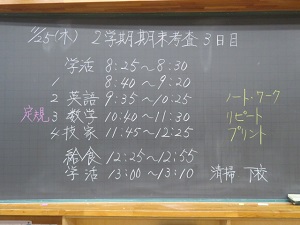 11/25(木) 2学期期末考査3日目
学活 8:25～8:30
1 8:40～9:20
2 英語 9:35～10:25 ノート・ワーク
定規 3 数学 10:40～11:30 リピート
4 技家 11:45～12:25 プリント
給食 12:25～12:55
学活 13:00～13:10 清掃 下校